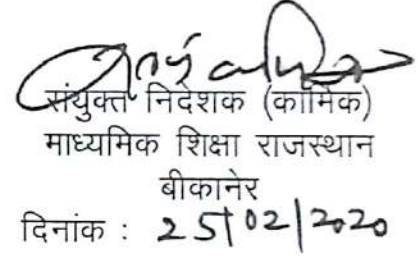 संयुक्त निदेशक (कार्मिक)
माध्यमिक शिक्षा राजस्थान
बीकानेर
दिनांक : 25/02/2020